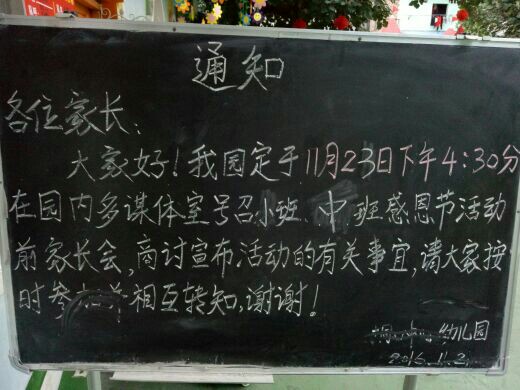 通知
各位家长:
大家好!我园定于11月23日下午4:30分
在园内多谋体室号召小班、中班感恩节活动
前家长会,商讨宣布活动的有关事宜,请大家按
时参加并相互转知,谢谢!
幼儿园
2016.11.21